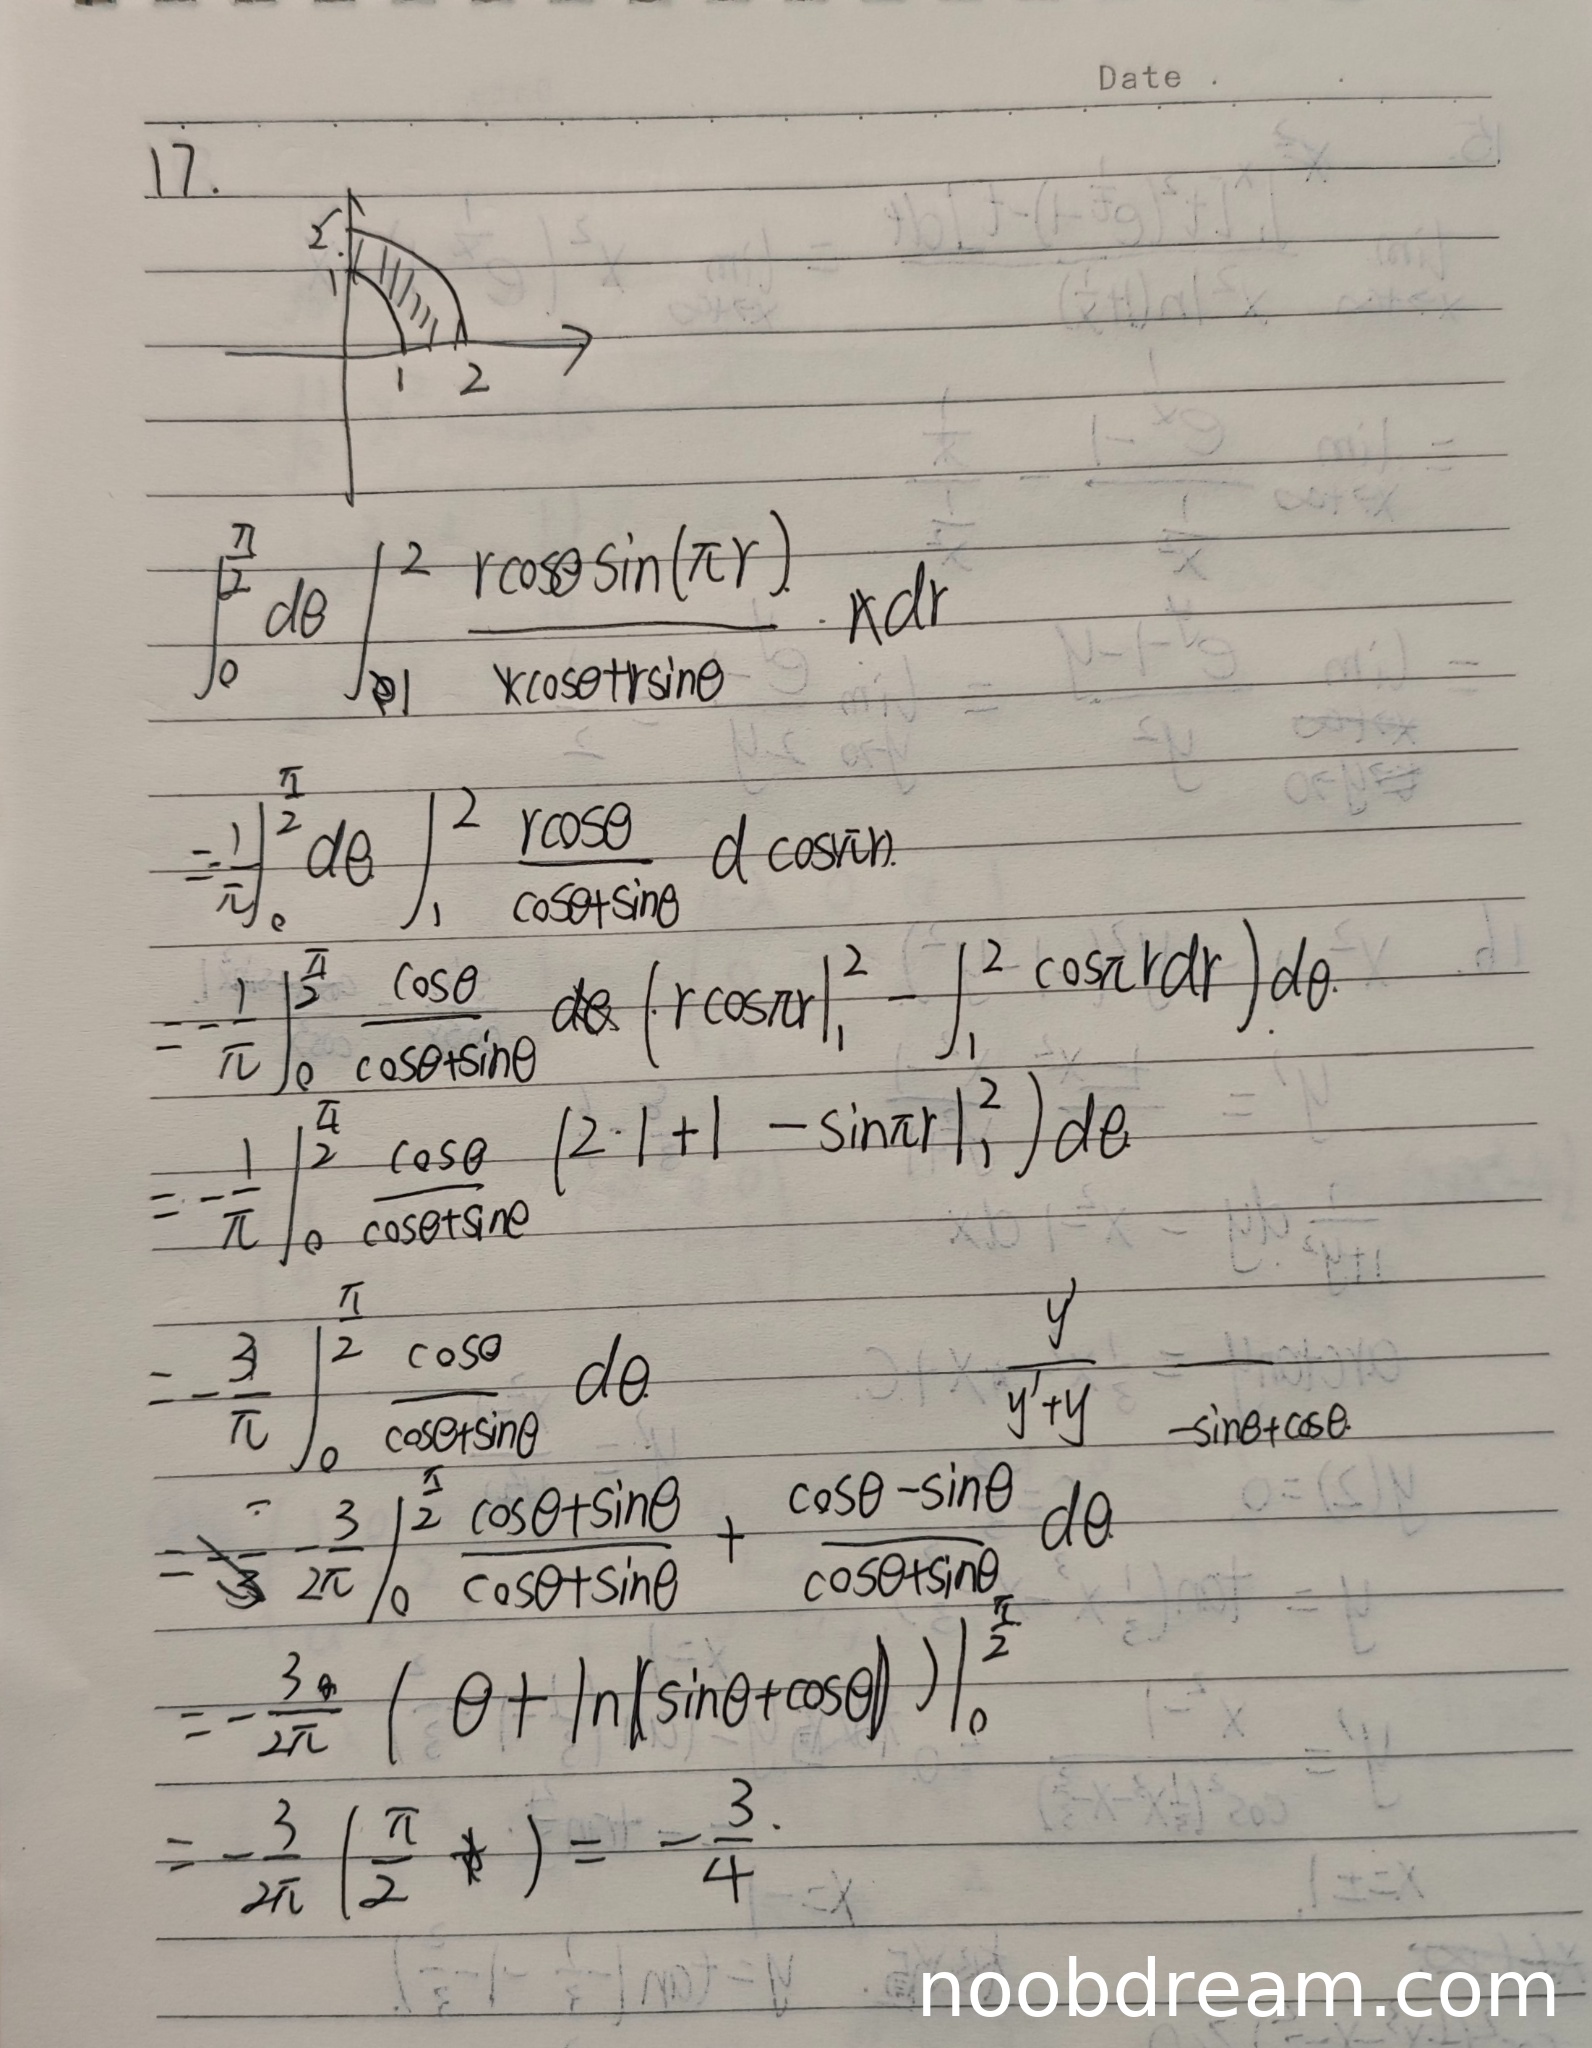 Date
17.
2
1
1 2
∫_0^{π/2} dθ ∫_1^2 \frac{rcosθ sin(πr)}{rcosθ+rsinθ} · rdr
= -\frac{1}{π} ∫_0^{π/2} dθ ∫_1^2 \frac{rcosθ}{cosθ+sinθ} d cosπr.
= -\frac{1}{π} ∫_0^{π/2} \frac{cosθ}{cosθ+sinθ} (rcosπr|_1^2 - ∫_1^2 cosπrdr) dθ.
= -\frac{1}{π} ∫_0^{π/2} \frac{cosθ}{cosθ+sinθ} (2·1+1 - sinπr|_1^2) dθ.
= -\frac{3}{π} ∫_0^{π/2} \frac{cosθ}{cosθ+sinθ} dθ. \frac{y'}{y'+y} \frac{}{-sinθ+cosθ}.
= -\frac{3}{2π} ∫_0^{π/2} \frac{cosθ+sinθ}{cosθ+sinθ} + \frac{cosθ-sinθ}{cosθ+sinθ} dθ.
= -\frac{3}{2π} (θ + ln|sinθ+cosθ|)|_0^{π/2}
= -\frac{3}{2π} (\frac{π}{2}) = -\frac{3}{4}.
noobdream.com